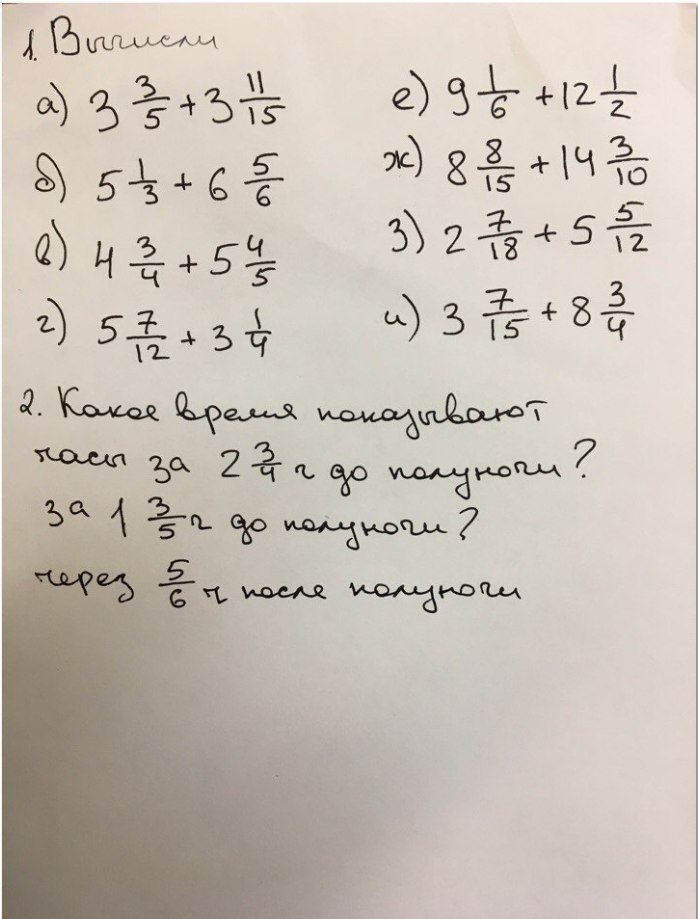 1. Вычисли
а) 3 3/5 + 3 11/15
б) 5 1/3 + 6 5/6
в) 4 3/4 + 5 4/5
г) 5 7/12 + 3 1/4
е) 9 1/6 + 12 1/2
ж) 8 8/15 + 14 3/10
з) 2 7/18 + 5 5/12
и) 3 7/15 + 8 3/4
2. Какое время показывают
часы за 2 3/4 ч до полуночи?
за 1 3/5 ч до полуночи?
через 5/6 ч после полуночи